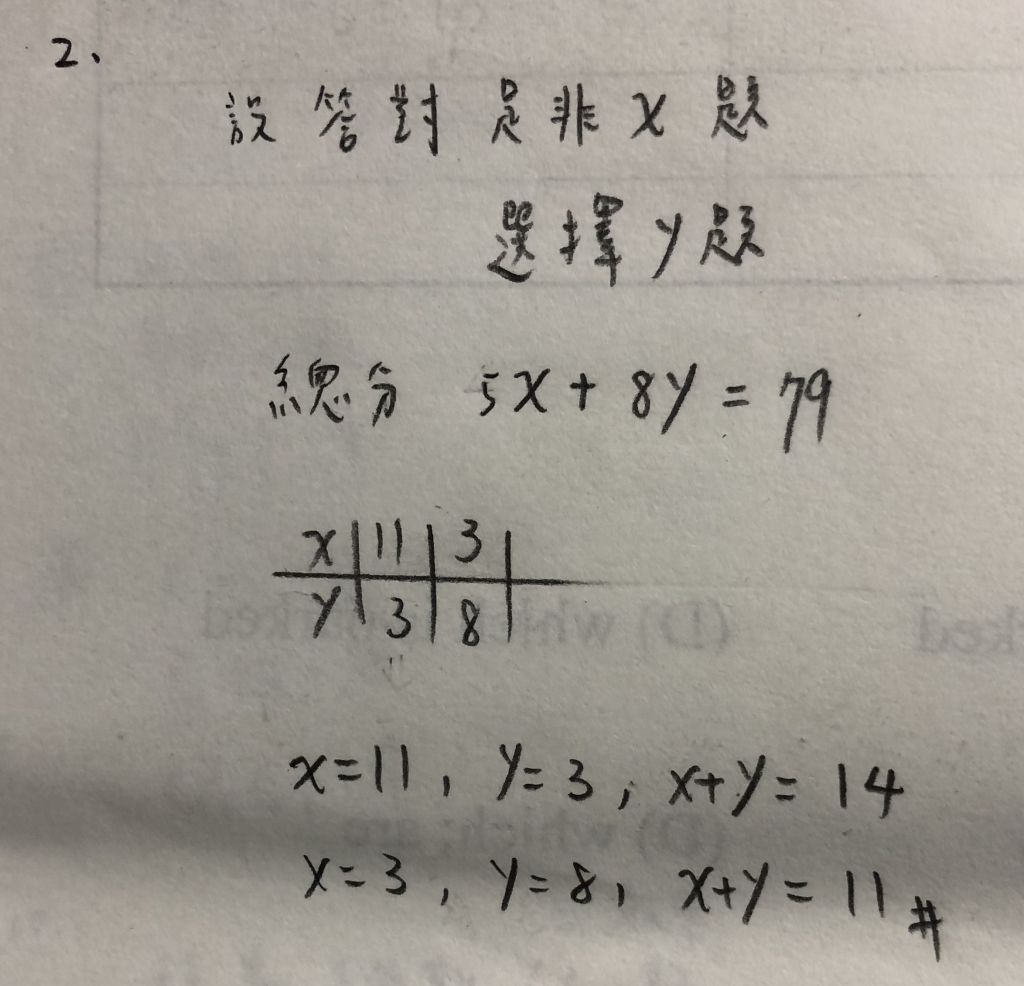 2、
設答對是非x題
選擇y題
總分 5x + 8y = 79
x | 11 | 3 |
y | 3 | 8 |
x=11, y=3, x+y=14
x=3, y=8, x+y=11 #